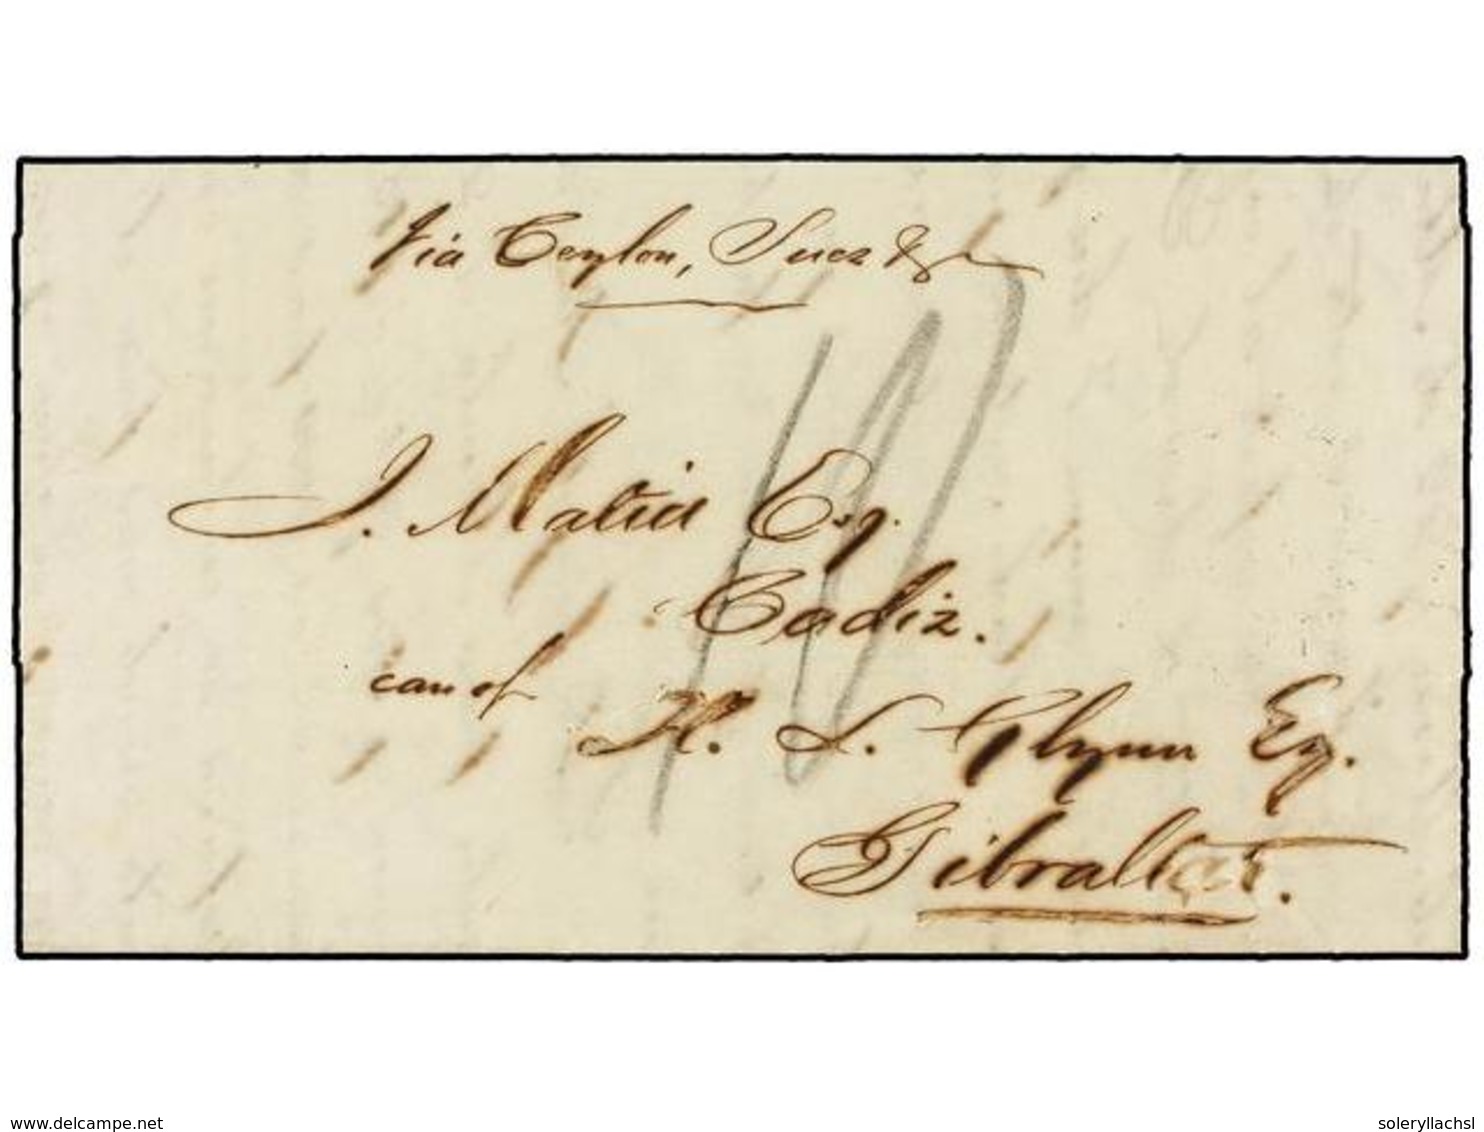 Via Ceylon, Suez &c
J. Matia Esq.
Cadiz.
care of
H. L. Glynn Esq.
Gibraltar.
delcampe.net
soleryllachsl